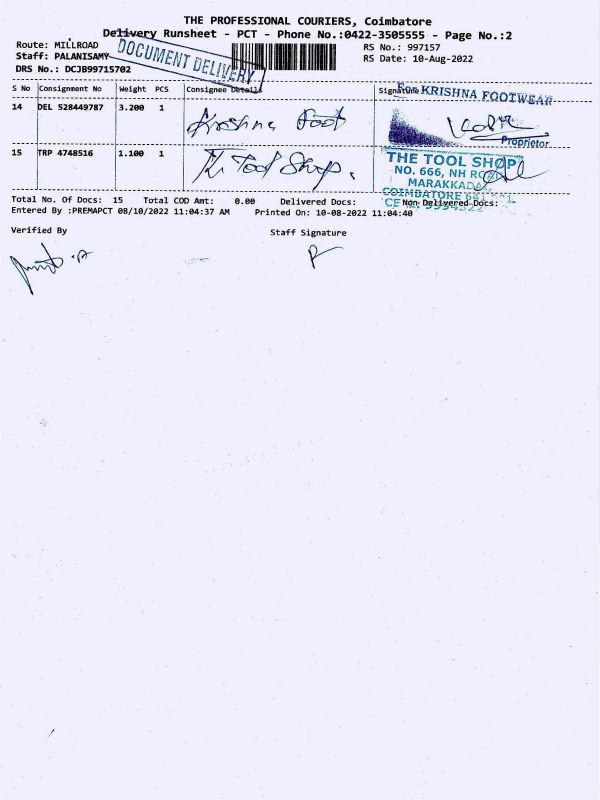 THE PROFESSIONAL COURIERS, Coimbatore
Delivery Runsheet - PCT - Phone No.:0422-3505555 - Page No.:2
Route: MILLROAD
Staff: PALANISAMY
DRS No.: DCJB99715702
DOCUMENT DELIVERY
RS No.: 997157
RS Date: 10-Aug-2022
S No Consignment No Weight PCS Consignee Details Signature
For KRISHNA FOOTWEAR
14 DEL 528449787 3.200 1 Krishna Foot
Proprietor
15 TRP 4748516 1.100 1 The Tool Shop.
THE TOOL SHOP
NO. 666, NH ROAD
MARAKKADAI
COIMBATORE
Total No. Of Docs: 15 Total COD Amt: 0.00 Delivered Docs: Non Delivered Docs:
Entered By :PREMAPCT 08/10/2022 11:04:37 AM Printed On: 10-08-2022 11:04:40
Verified By Staff Signature